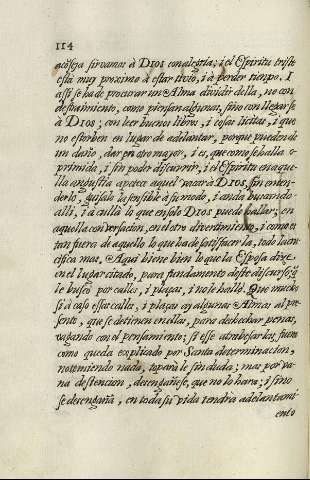 114
acõseja sirvamos à DIOS con alegria; i el Espiritu triste
està muy proximo à estar tivio, i à perder tiempo. I
assi se ha de procurar un Alma dividir della, no con
destraimiento, como piensan algunas, sino con llegarse
à DIOS; con leer buenos libros, i cosas licitas, i que
no estorben en lugar de adelantar, porque pueden de
un daño, dar en otro mayor, i es, que como se halla o
primida, i sin poder discurrir, i el Espiritu en aque
lla angustia apetece aquel gozar à DIOS, sin enten
derlo, guisalo la sensible à su modo, i anda buscando
alli, i aculla lo que en solo DIOS puede hallar; en
aquella conversacion, en el otro divertimiento, i como es
tan fuera de aquello lo que ha de satisfacerla, todo la cru
cifica mas, Aqui biene bien lo que la Esposa dixo
en el lugar citado, para fundamento deste discurso; q̃
le buscò por calles, i plaças, i no le hallò. Que mucho
si à caso essas calles, i plaças ay algunas Almas al pre
sente, que se detienen en ellas, para deshechar penas,
vagando con el pensamiento; si esse atrabesarlas, fuera
como queda explicado por Santa determinacion,
no temiendo nada, toparàle sin duda; mas por va
na distencion, desengañese, que no lo harà; i sino
se desengaña, en toda su vida tendrà adelantami
ento